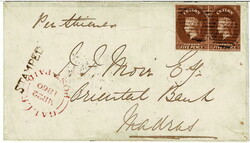 Per Steamer
CEYLON CEYLON
FIVE PENCE FIVE PENCE
STAMPED
GALLE
1860
POST PAID
J. J. Moir Esq
Oriental Bank
Madras